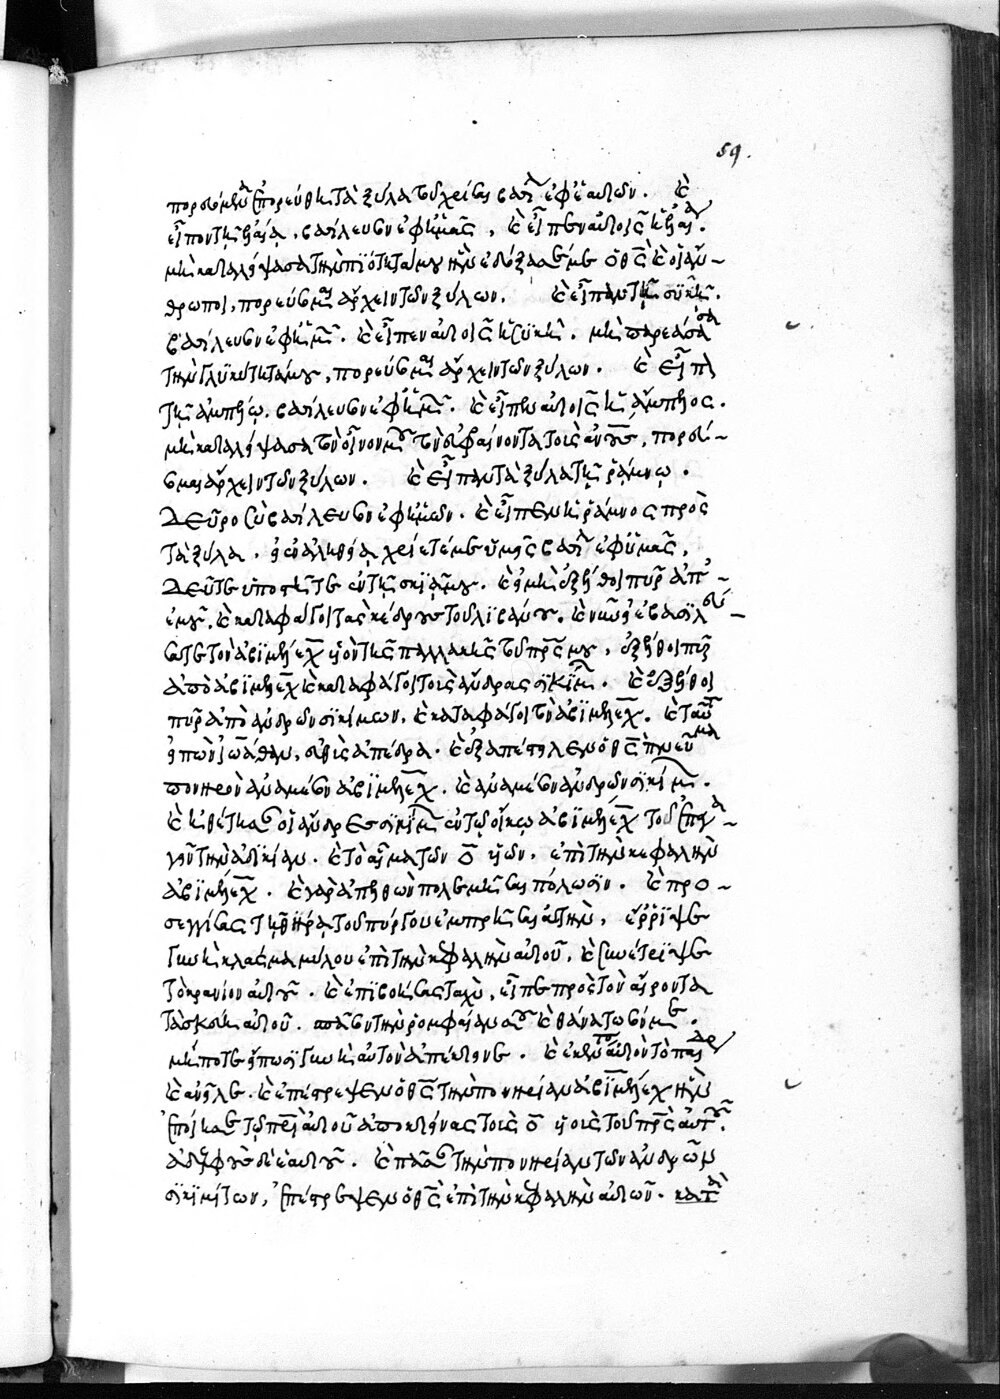 59.
πορευόμενα ἐπορεύθη τὰ ξύλα τοῦ χρίσαι βασιλέα ἐφ' ἑαυτῶν. καὶ
εἶπον τῇ ἐλαίᾳ, βασίλευσον ἐφ' ἡμᾶς, καὶ εἶπεν αὐτοῖς ἡ ἐλαία.
μὴ καταλείψασα τὴν πιότητά μου ἣν ἐδόξασεν ὁ θεὸς καὶ οἱ ἄν-
θρωποι, πορεύσομαι ἄρχειν τῶν ξύλων. καὶ εἶπαν τῇ συκῇ.
βασίλευσον ἐφ' ἡμῖν. καὶ εἶπεν αὐτοῖς ἡ συκῆ. μὴ παρεάσασα
τὴν γλυκύτητά μου, πορεύσομαι ἄρχειν τῶν ξύλων. καὶ εἶπον
τῇ ἀμπέλῳ. βασίλευσον ἐφ' ἡμῖν. καὶ εἶπεν αὐτοῖς ἡ ἄμπελος.
μὴ καταλείψασα τὸν οἶνόν μου τὸν εὐφραίνοντα τοὺς ἀνθρώπους, πορεύ-
σομαι ἄρχειν τῶν ξύλων. καὶ εἶπαν τὰ ξύλα τῇ ῥάμνῳ.
Δεῦρο σὺ βασίλευσον ἐφ' ἡμῶν. καὶ εἶπεν ἡ ῥάμνος πρὸς
τὰ ξύλα. εἰ ἐν ἀληθείᾳ χρίετέ με ὑμεῖς βασιλέα ἐφ' ὑμᾶς,
Δεῦτε ὑπόστητε ἐν τῇ σκιᾷ μου. καὶ εἰ μὴ ἐξέλθοι πῦρ ἀπ'
ἐμοῦ, καὶ καταφάγοι τὰς κέδρους τοῦ λιβάνου.
ἀπὸ ἀβιμέλεχ καὶ καταφάγοι τοὺς ἄνδρας σικίμων. καὶ ἐξέλθοι
πῦρ ἀπὸ ἀνδρῶν σικίμων, καὶ καταφάγοι τὸν ἀβιμέλεχ. καὶ ταῦτα
εἰπὼν ἰωάθαμ, εὐθὺς ἀπέδρα. καὶ ἐξαπέστειλεν ὁ θεὸς πνεῦμα
πονηρὸν ἀνάμεσον ἀβιμέλεχ. καὶ ἀνάμεσον ἀνδρῶν σικίμων.
ἄνδρες σικίμων ἐν τῷ οἴκῳ ἀβιμέλεχ τοῦ ἐπαγα-
γεῖν τὴν ἀδικίαν. καὶ τὸ αἷμα τῶν ο υἱῶν, ἐπὶ τὴν κεφαλὴν
ἀβιμέλεχ. πόλεων. καὶ προ-
σεγγίσας τῇ θύρᾳ τοῦ πύργου ἐμπρῆσαι αὐτήν, ἔρριψε
γυνὴ κλάσμα μύλου ἐπὶ τὴν κεφαλὴν αὐτοῦ, καὶ συνέτριψε
τὸ κρανίον αὐτοῦ. καὶ ἐπιβοήσας ταχὺ, εἶπε πρὸς τὸν αἴροντα
τὰ σκεύη αὐτοῦ. σπάσον τὴν ῥομφαίαν σου καὶ θανάτωσόν με.
μήποτε εἴπωσι γυνὴ αὐτὸν ἀπέκτεινε. καὶ ἐξεκέντησεν αὐτὸν τὸ παιδάριον
καὶ ἀνεῖλε. καὶ ἐπέτρεψεν ὁ θεὸς τὴν πονηρίαν ἀβιμέλεχ ἣν
ἐποίησε τῷ πατρὶ αὐτοῦ ἀποκτείνας τοὺς ο υἱοὺς τοῦ πατρὸς αὐτοῦ.
ἀδελφοὺς δὲ αὐτοῦ. καὶ πᾶσαν τὴν πονηρίαν τῶν ἀνδρῶν
σικιμιτων, ἐπέτρεψεν ὁ θεὸς ἐπὶ τὴν κεφαλὴν αὐτῶν. κατὰ